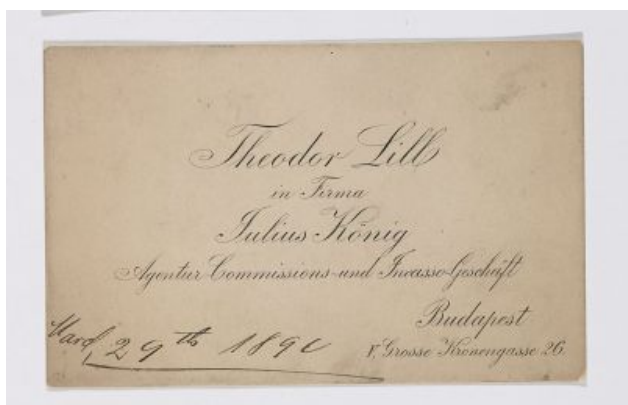 Theodor Lill
in Firma
Julius König
Agentur Commissions- und Incasso-Geschäft
Budapest
V. Grosse Kronengasse 26.
29th